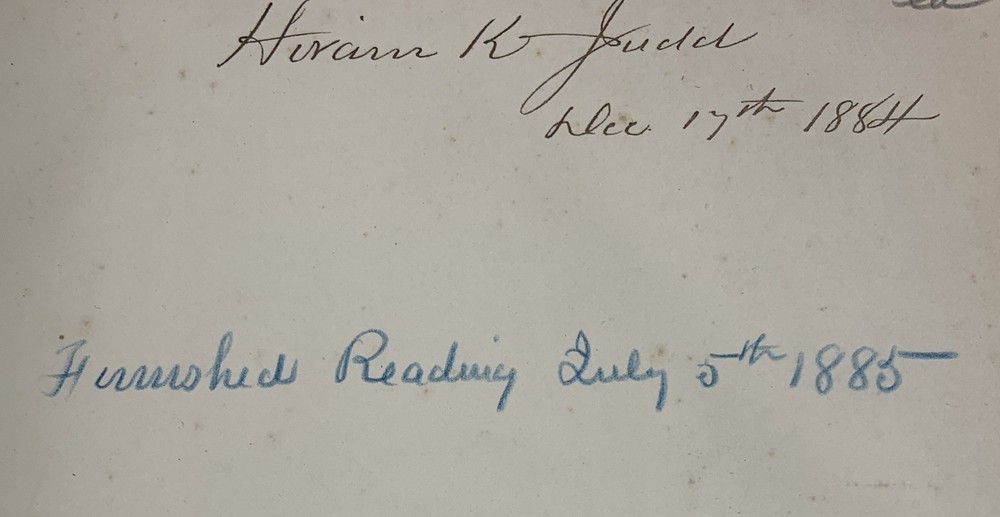 Hiram K Judd
Dec. 17th 1884
Finnished Reading July 5th 1885